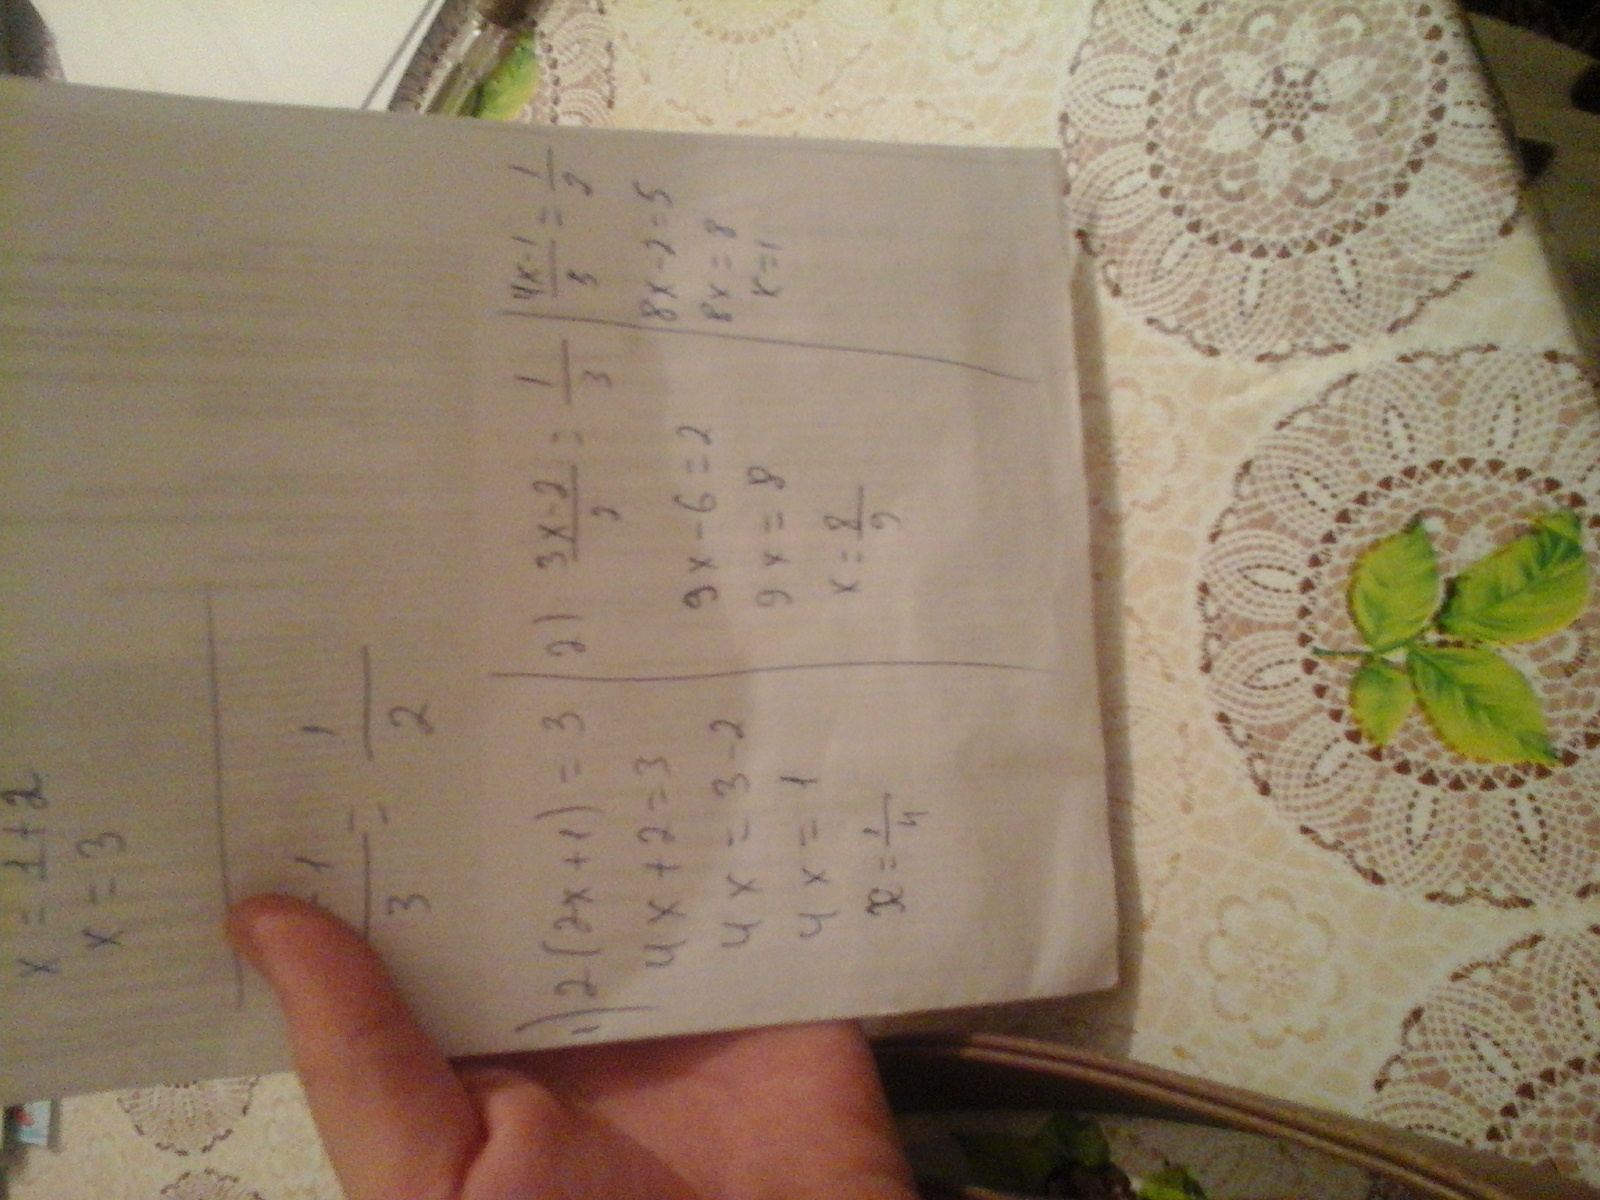 x = 1+2
x = 3
-1/3 = 1/2
1) 2(2x+1) = 3
4x+2=3
4x = 3-2
4x = 1
x = 1/4
2) 3x-2/2 = 1/3
9x-6=2
9x=8
x = 8/9
4x-1/5 = 1/2
8x-2=5
8x=8
x=1